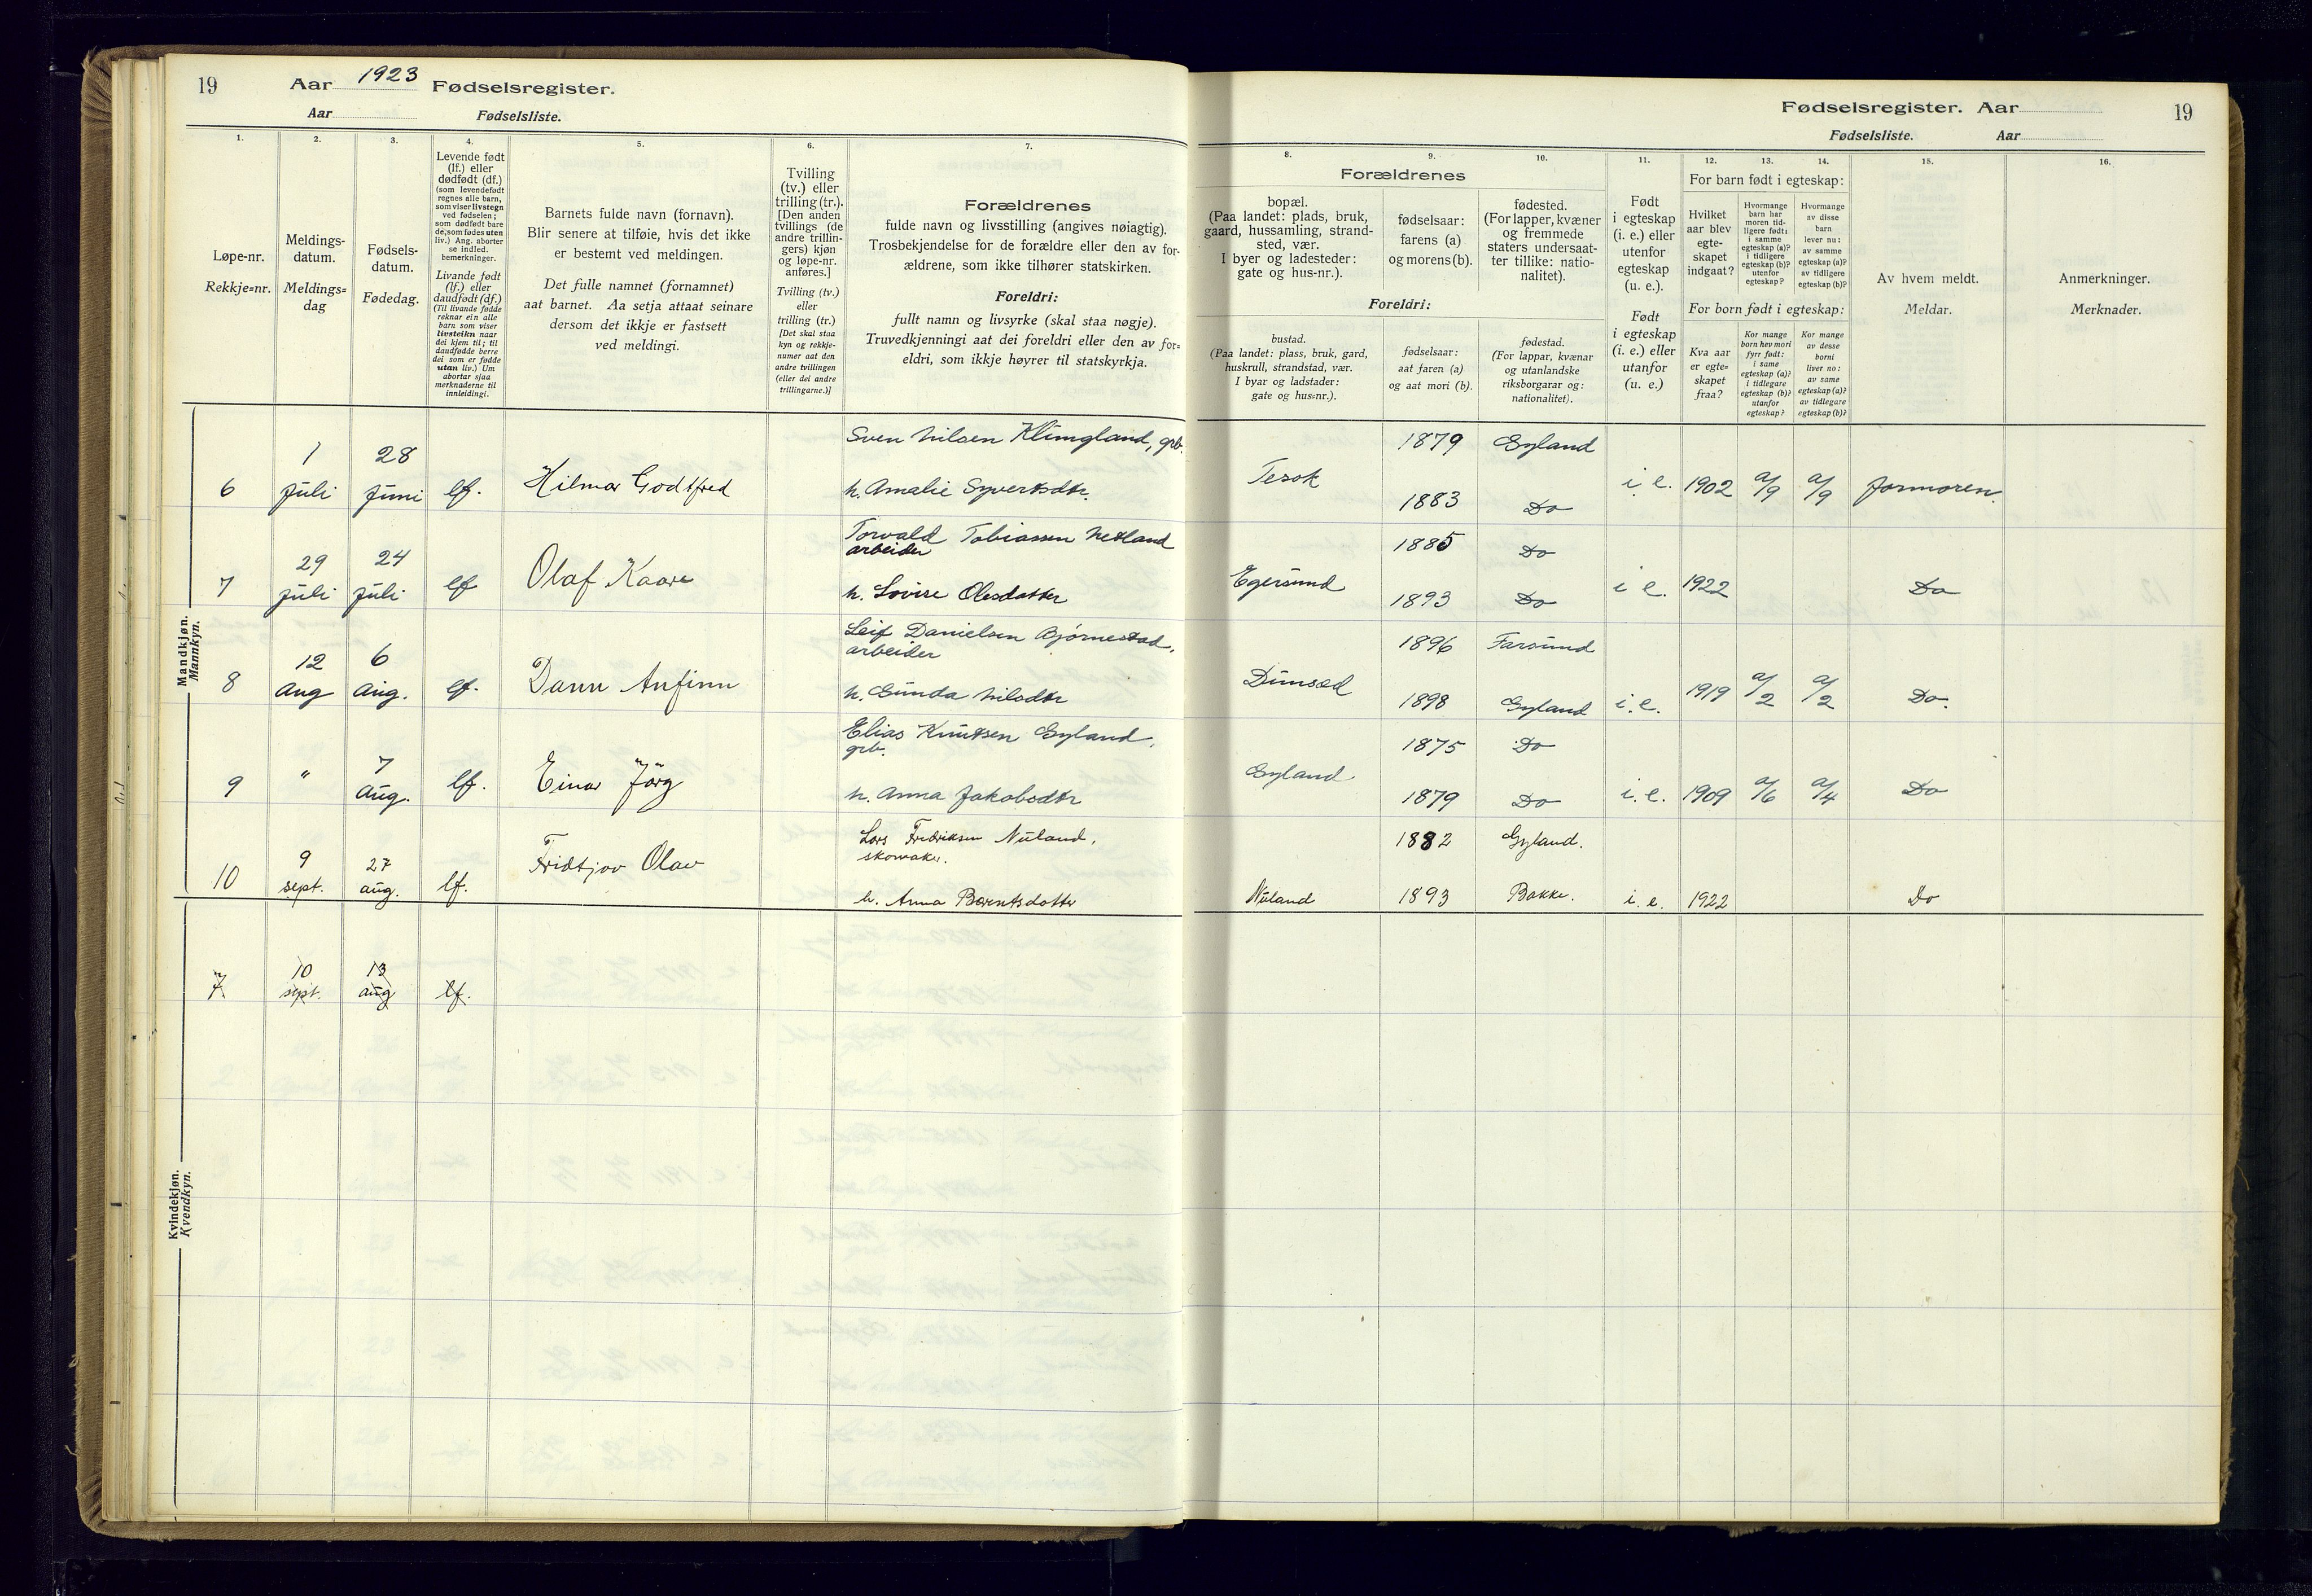 19
Aar 1923 Fødselsregister.
Aar Fødselsliste.
Fødselsregister. Aar
19
Fødselsliste. Aar
1.
Løpe-nr.
Rekkje=nr.
2.
Meldings-
datum.
Meldings=
dag
3.
Fødsels-
datum.
Fødedag.
4.
Levende født
(lf.) eller
dødfødt (df.)
(som levendefødt
regnes alle barn,
som viser livstegn
ved fødselen;
som dødfødt bare
de, som fødes uten
liv.) Ang. aborter
se indled.
bemerkninger.
Livande født
(lf.) eller
daudfødt (df.)
(Til livande fødde
reknar ein alle
barn som viser
livsteikn naar
dei kjem til; til
daudfødde berre
dei som er fødde
utan liv.) Um
abortar sjaa
merknaderne til
innleidingi.
5.
Barnets fulde navn (fornavn).
Blir senere at tilføie, hvis det ikke
er bestemt ved meldingen.
Det fulle namnet (fornamnet)
aat barnet. Aa setja attaat seinare
dersom det ikkje er fastsett
ved meldingi.
6.
Tvilling
(tv.) eller
trilling (tr.).
[Den anden
tvillings (de
andre trillin-
gers) kjøn
og løpe-nr.
anføres.]
Tvilling (tv.)
eller
trilling (tr.)
[Det skal staa
kyn og rekkje-
numer aat den
andre tvillingen
(eller dei andre
trillingarne.)]
7.
Forældrenes
fulde navn og livsstilling (angives nøiagtig).
Trosbekjendelse for de forældre eller den av for-
ældrene, som ikke tilhører statskirken.
Foreldri:
fullt namn og livsyrke (skal staa nøgje).
Truvedkjenningi aat dei foreldri eller den av for=
eldri, som ikkje høyrer til statskyrkja.
Forældrenes
8.
bopæl.
(Paa landet: plads, bruk,
gaard, hussamling, strand-
sted, vær.
I byer og ladesteder:
gate og hus-nr.).
9.
fødselsaar:
farens (a)
og morens (b).
10.
fødested.
(For lapper, kvæner
og fremmede
staters undersaat-
ter tillike: natio-
nalitet).
Foreldri:
bustad.
(Paa landet: plass, bruk, gard,
huskrull, strandstad, vær.
I byar og ladstader:
gate og hus=nr.).
fødselsaar:
aat faren (a)
og aat mori (b).
fødestad.
(For lappar, kvænar
og utanlandske
riksborgarar og:
nationalitet).
11.
Født
i egteskap
(i. e.) eller
utenfor
egteskap
(u. e.).
Født
i egteskap
(i. e.) eller
utanfor
(u. e.)
For barn født i egteskap:
12.
Hvilket
aar blev
egte-
skapet
indgaat?
13.
Hvormange
barn har
moren tid-
ligere født:
i samme
egteskap (a)?
i tidligere
egteskap (b)?
utenfor
egteskap?
14.
Hvormange
av disse
barn
lever nu:
av samme
egteskap (a)?
av tidligere
egteskap (b)?
For born født i egteskap:
Kva aar
er egte=
skapet
fraa?
Kor mange
born hev mori
fyrr født:
i same
egteskap (a)?
i tidlegare
egteskap (b)?
utanfor
egteskap?
Kor mange
av desse
borni
liver no:
av same
egteskap (a)?
av tidlegare
egteskap (b)?
15.
Av hvem meldt.
Meldar.
16.
Anmerkninger.
Merknader.
Mandkjøn.
Mannkyn.
Sven Nilsen Klungland, grb. 1879 Gyland
6 1 juli 28 juni lf. Hilmar Godtfred Tesok i. e. 1902 a/9 a/9 Jormoren.
h. Amalie Syvertsdtr. 1883 Do
Torvald Tobiassen Netland 1885 Do
arbeider
7 29 juli 24 juli lf Olaf Kaare Egersund i e. 1922 Do
h. Lovise Olesdatter 1893 Do
Leif Danielsen Bjørnestad, 1896 Farsund
arbeider
8 12 Aug 6 Aug. lf. Dann Anfinn Dunsæd i. e. 1919 a/2 a/2 Do.
h. Gunda Nilsdtr 1898 Gyland
Elias Knutsen Gyland, 1875 Do
grb.
9 " 7 Aug. lf. Einar Jørg Gyland i. e. 1909 a/6 a/4 Do
h. Anna Jakobsdtr 1879 Do
Lars Fredriksen Nuland, 1882 Gyland.
skomaker.
10 9 sept. 27 aug. lf. Fridtjov Olav
h. Anna Berentsdotter Nuland 1893 Bakke. i. e. 1922 Do
Kvindekjøn.
Kvendkyn.
7 10 sept. 13 aug lf.